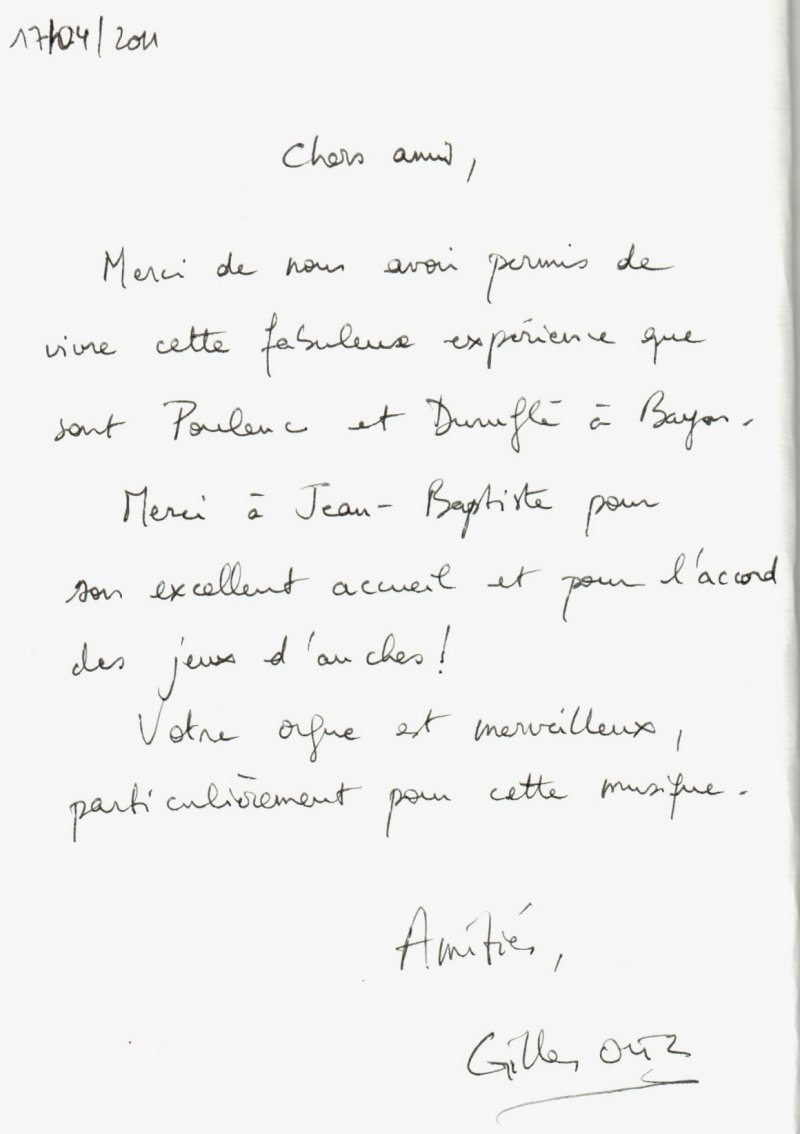 17/04/2011
Chers amis,
Merci de nous avoir permis de
vivre cette fabuleuse expérience que
sont Poulenc et Duruflé à Bayon.
Merci à Jean-Baptiste pour
son excellent accueil et pour l'accord
des jeux d'anches!
Votre orgue est merveilleux,
particulièrement pour cette musique.
Amitiés,
Gilles